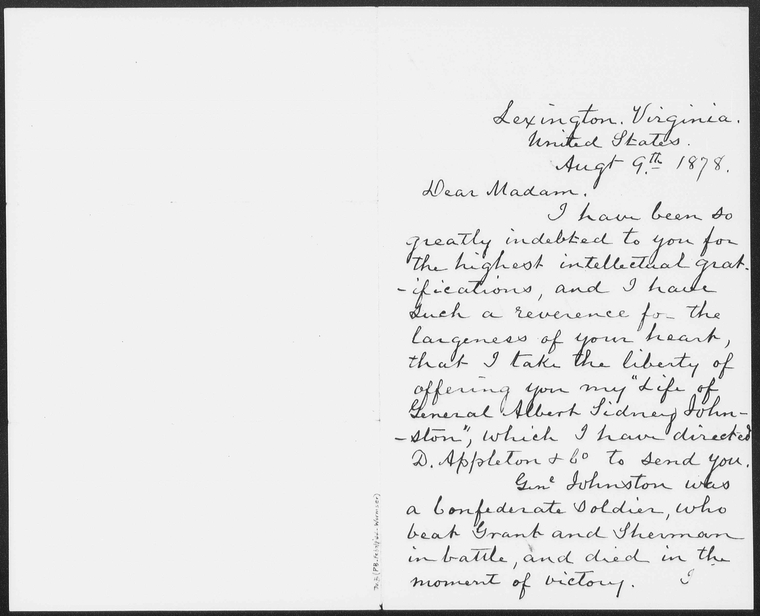 Lexington. Virginia.
United States.
Augt 9th 1878.
Dear Madam.
I have been so
greatly indebted to you for
the highest intellectual grat-
-ifications, and I have
such a reverence for the
largeness of your heart,
that I take the liberty of
offering you my "Life of
General Albert Sidney John-
-ston", which I have directed
D. Appleton & Co to send you.
Genl Johnston was
a Confederate Soldier, who
beat Grant and Sherman
in battle, and died in the
moment of victory. I